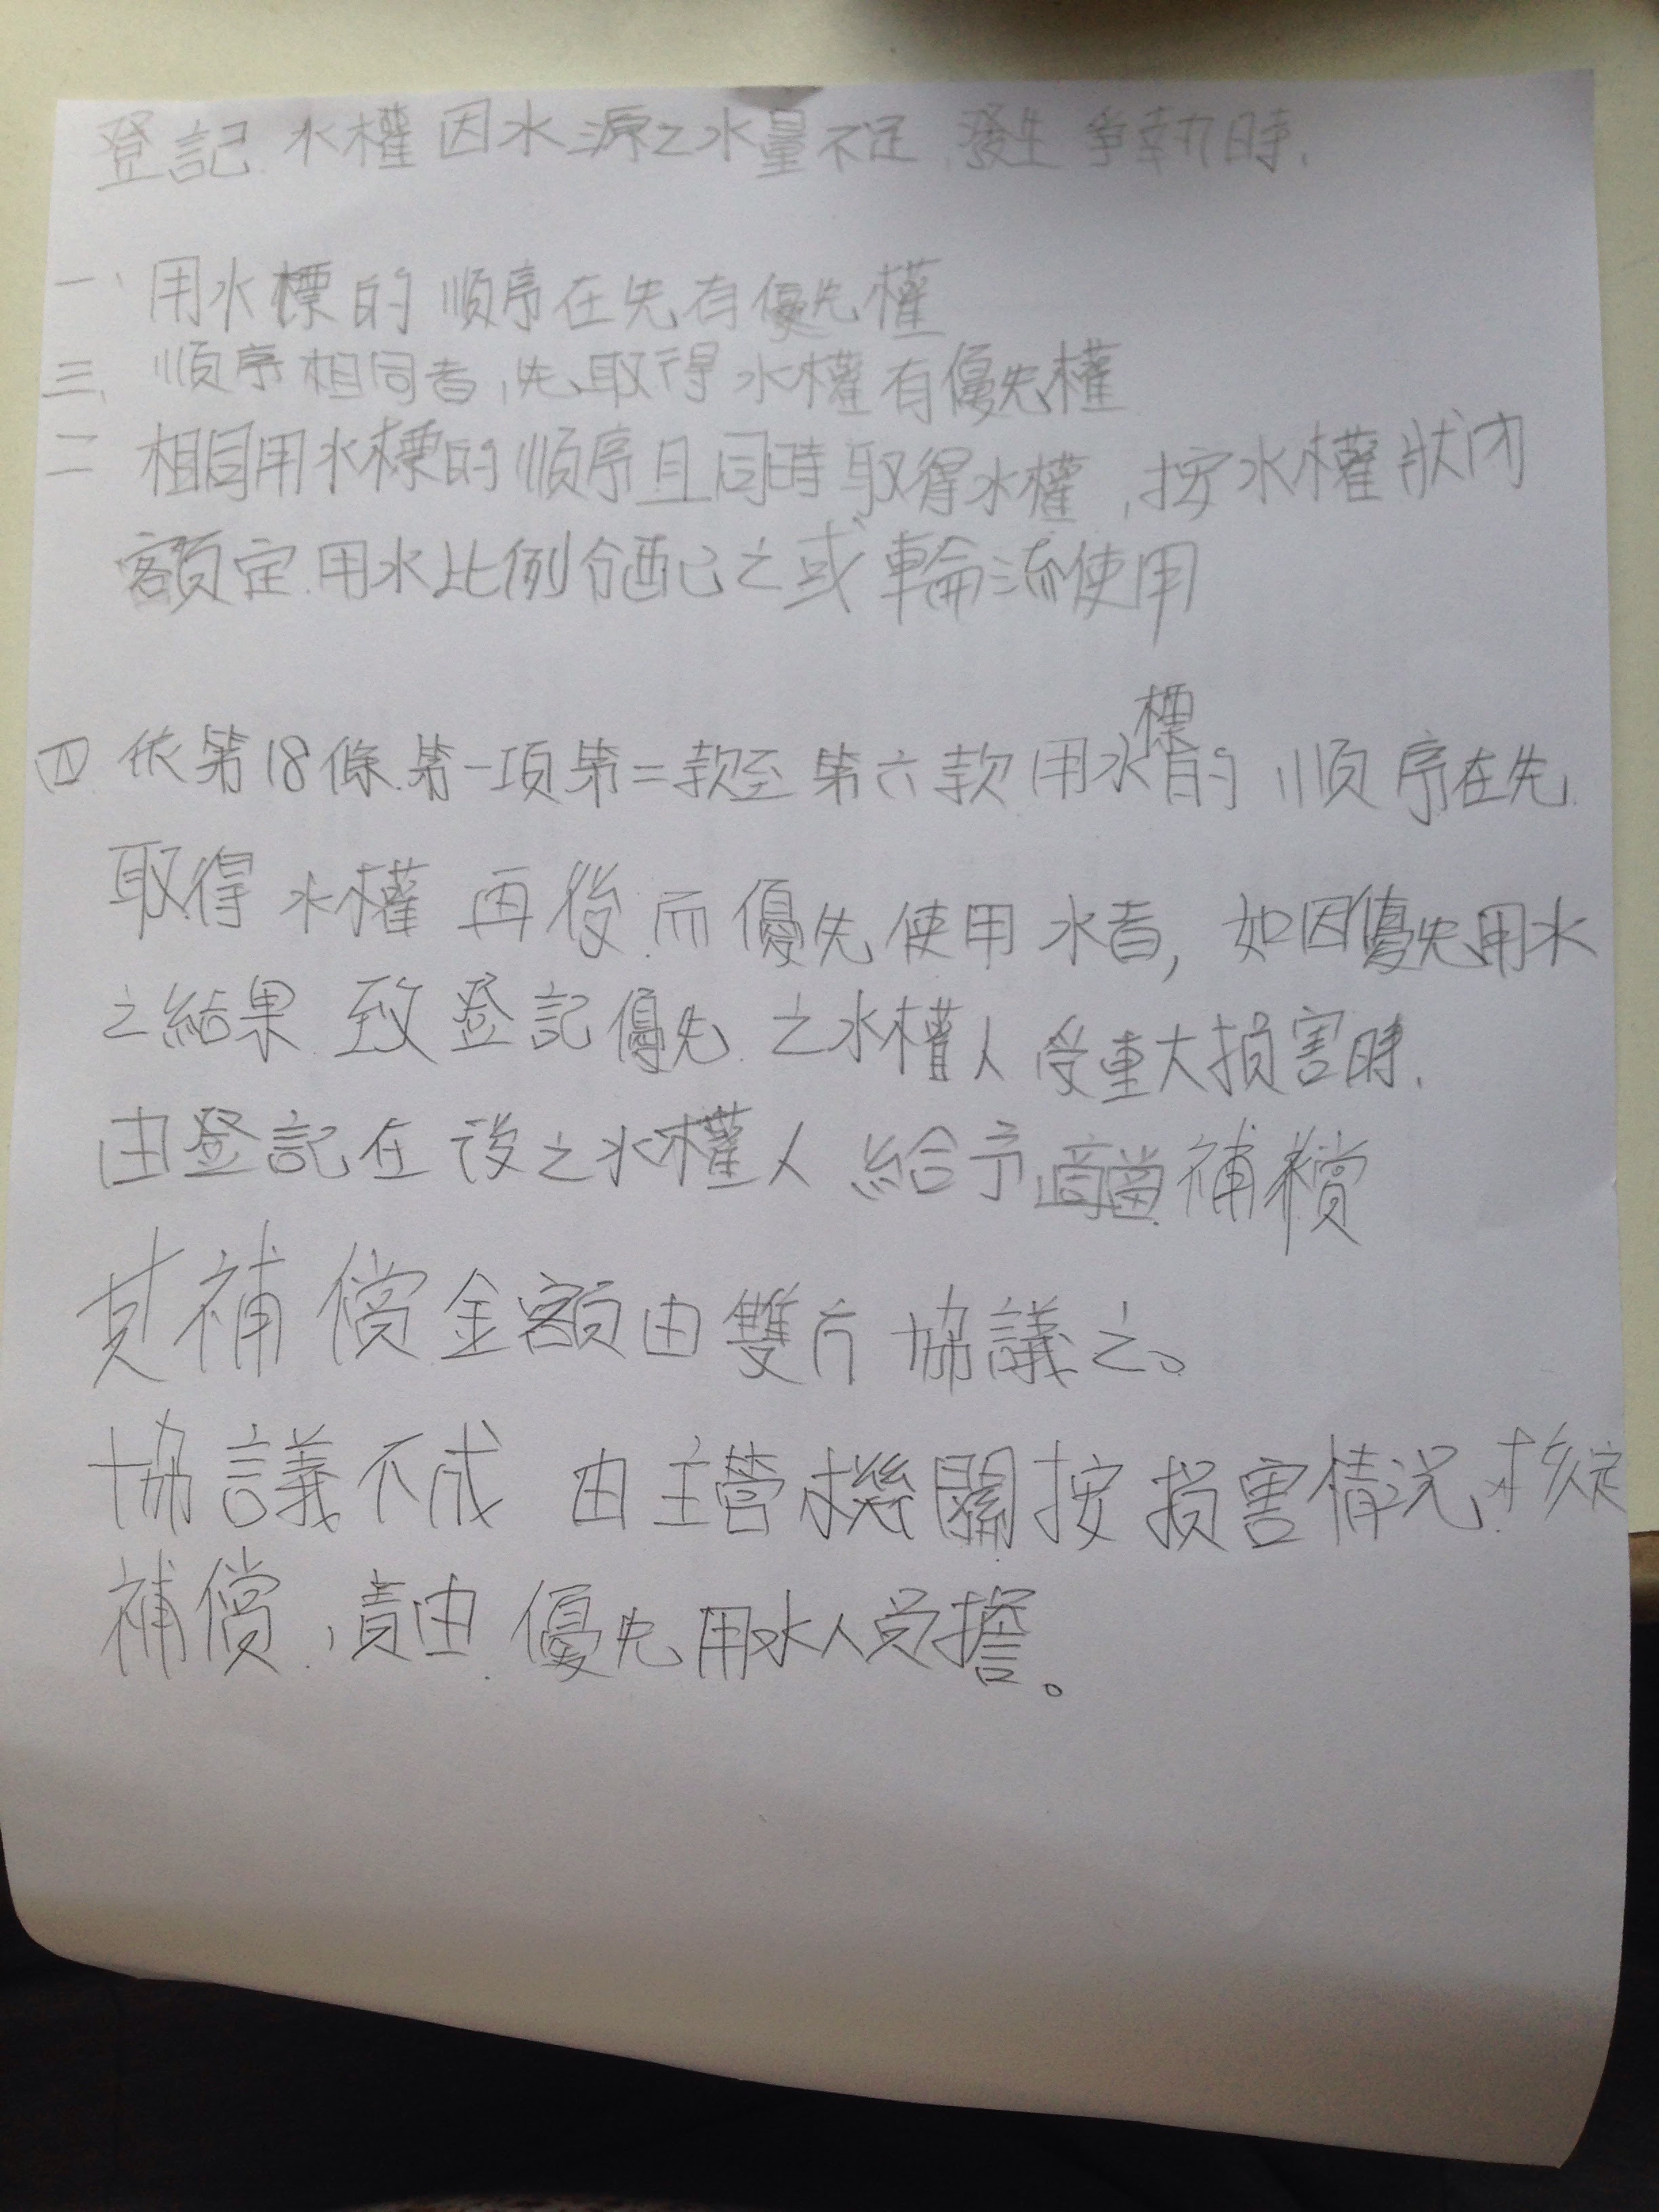 登記水權因水源之水量不足,發生爭執時,
一、用水標的順序在先有優先權
三、順序相同者,先取得水權有優先權
二 相同用水標的順序且同時取得水權,按水權狀內
額定用水比例分配之或輪流使用
標
四 依第18條第一項第二款至第六款用水的順序在先
取得水權再後而優先使用水者,如因優先用水
之結果致登記優先之水權人受重大損害時,
由登記在後之水權人給予適當補償
其補償金額由雙方協議之。
協議不成 由主管機關按損害情況核定
補償,責由優先用水人負擔。